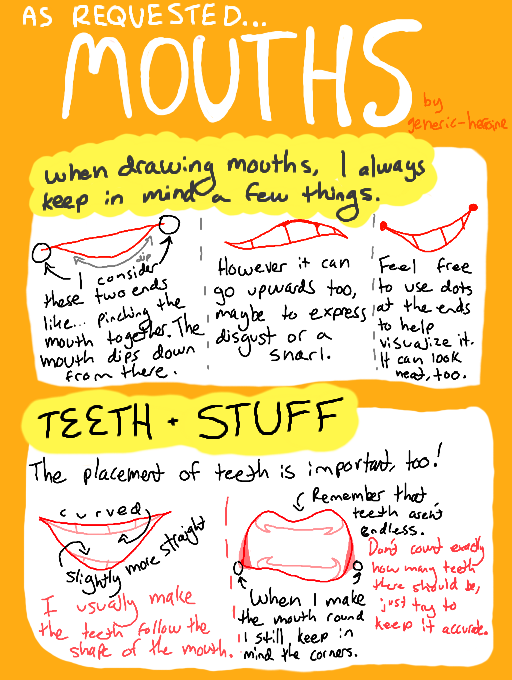 AS REQUESTED...
MOUTHS
by
generic-heroine
When drawing mouths, I always
keep in mind a few things.
dip
I consider
these two ends
like... pinching the
mouth together. The
mouth dips down
from there.
However it can
go upwards too,
maybe to express
disgust or a
snarl.
Feel free
to use dots
at the ends
to help
visualize it.
It can look
neat, too.
TEETH + STUFF
The placement of teeth is important, too!
curved
slightly more straight
I usually make
the teeth follow the
shape of the mouth.
Remember that
teeth aren't
endless.
Don't count exactly
how many teeth
there should be,
just try to
keep it accurate.
When I make
the mouth round
I still keep in
mind the corners.